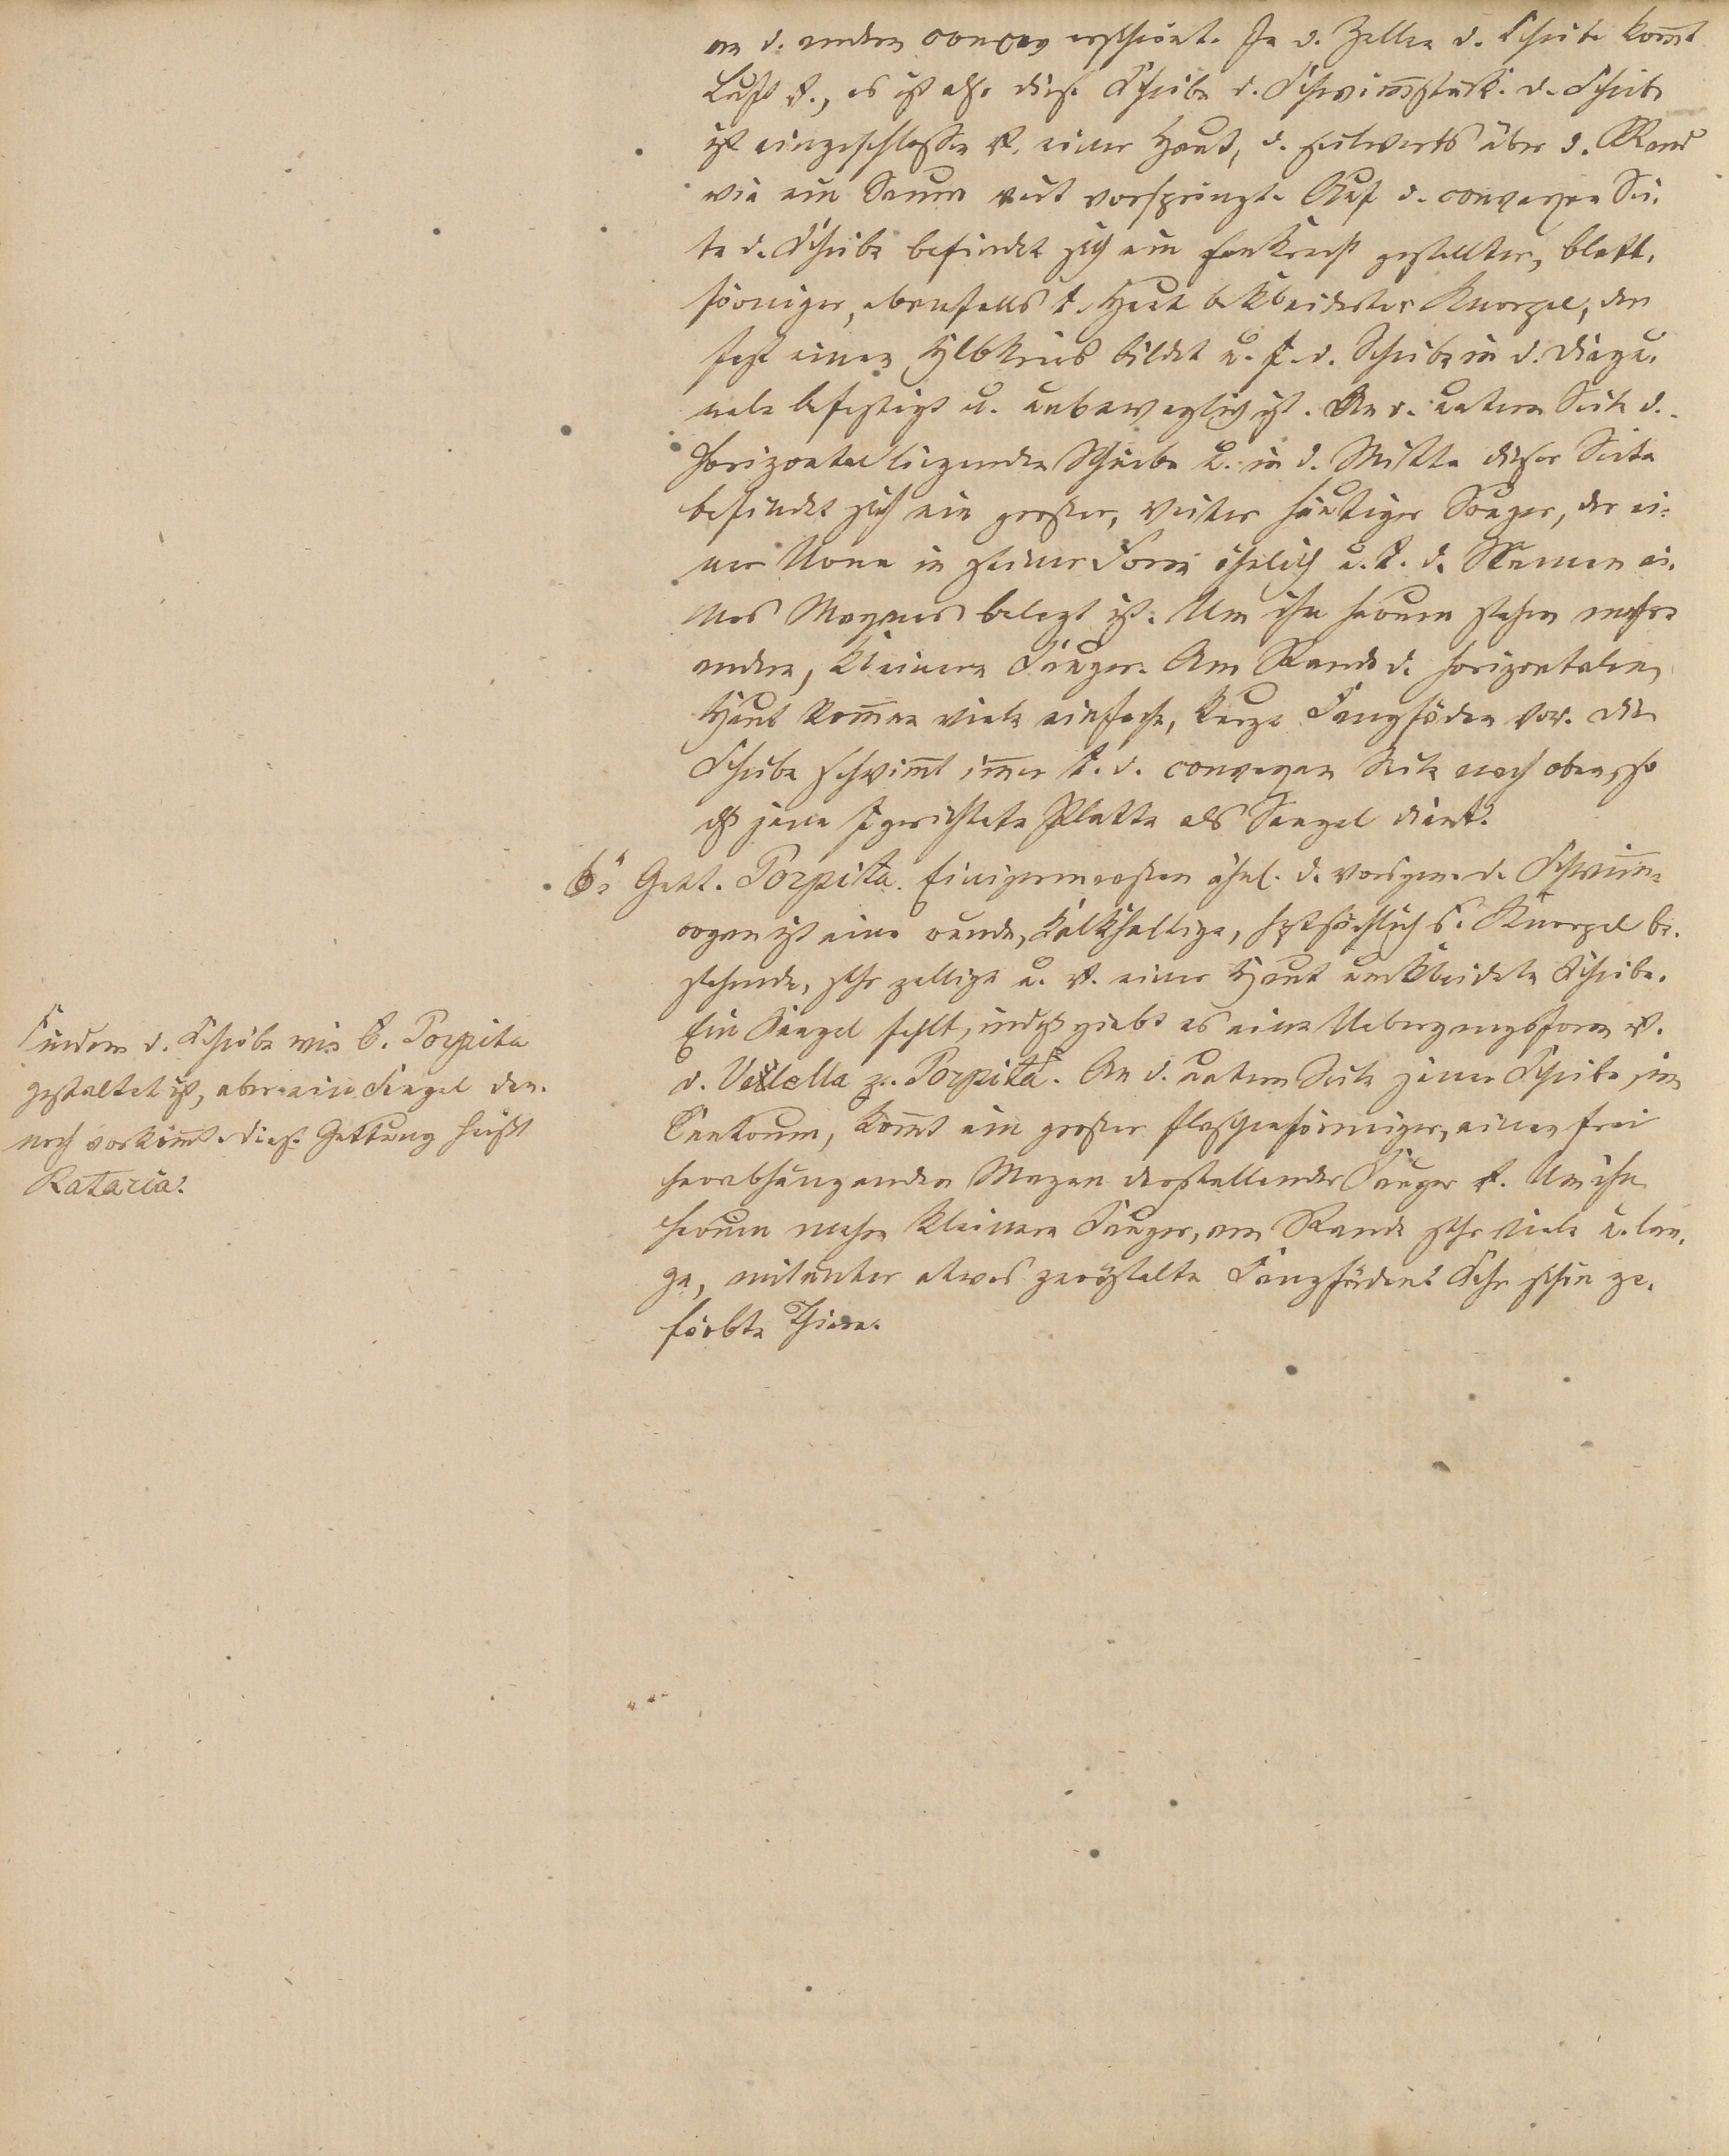 an d. andern concav erscheint. In d. Zellen d. Scheibe kom̅t
Luft v., es ist also diese Scheibe d. Schwim̅stück. d. Scheibe
ist eingeschlossen v. einer Haut, d. seitwärts über d. Rand
wie ein Saum weit vorspringt. Auf d. convexen Sei-
te d. Scheibe befindet sich ein senkrecht gestellter, blatt-
förmiger, ebenfalls v. Haut bekleideter Knorpel, der
fast einen Hlbkreis bildet u. d. Scheibe in d. Diago-
nale befestigt u. unbeweglich ist. An d. untern Seite d.
horizontal liegenden Scheibe u. in d. Mitte dieser Seite
befindet sich ein grosser, weiter häutiger Sauger, der ei-
ner in seiner Form ähnlich u. d. Namen ei-
nes Magens belegt ist. Um ihn herum stehen mehre
andere, kleinere Sauger. Am Rande d. horizontalen
Haut kom̅en viele einfache, kurze Fangfäden vor. Die
Scheibe schwim̅t im̅er d. convexen Seite nach oben, so
dß jene gerichtete Platte als Seegel dient.
6, Gatt. Porpita. Einigermassen ähnl. d. vorigen. d. Schwim̅-
organ ist eine runde, kalkhaltige, hptsächlich Knorpel be-
stehende, sehr zellige u. v. einer Haut umkleidete Scheibe.
Ein Seegel fehlt, indeß giebt es eine Uebergangsform v.
d. Velella zu Porpita. An d. untern Seite jener Scheibe, im
Centrum, kom̅t ein grosser flaschenförmiger, einen frei
herabhängenden Magen darstellender Sauger v. Um ihn
herum mehre kleinere Sauger, am Rande sehr viele u. lan-
ge, mitunter etwas Fangfäden. Sehr schön ge-
färbte Thiere.
Indem d. Scheibe wie b. Porpita
gestaltet ist, aber ein Seegel den-
noch vorkom̅t. Diese Gattung heißt
Rataria.